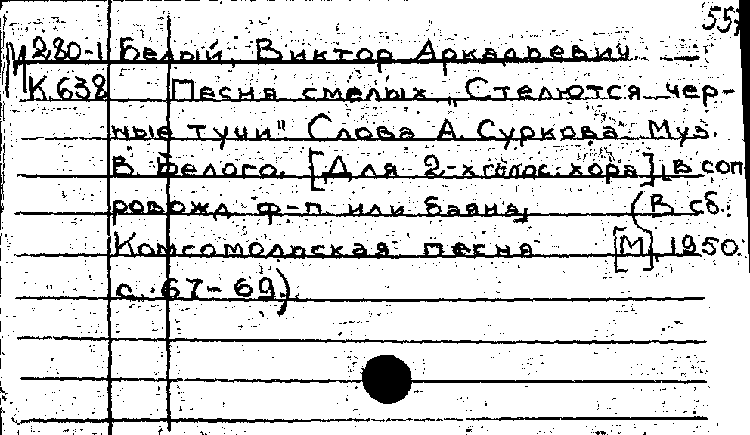 557
М280-1 Белый, Виктор Аркадьевич
К.638 Песня смелых „Стелются чер-
ные тучи" Слова А. Суркова. Муз.
В. Белого. [Для 2-х голос. хора], в соп
ровожд. ф-п. или баяна, (В сб.:
Комсомольская песня [М], 1950.
с. 67-69.)